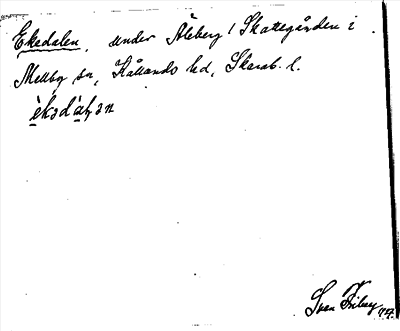 Ekedalen, under Åleberg 1 Skattegården i
Mellby sn, Kållands hd, Skarab. l.
è̠kədà̠ɫən
Sven Friberg 44.